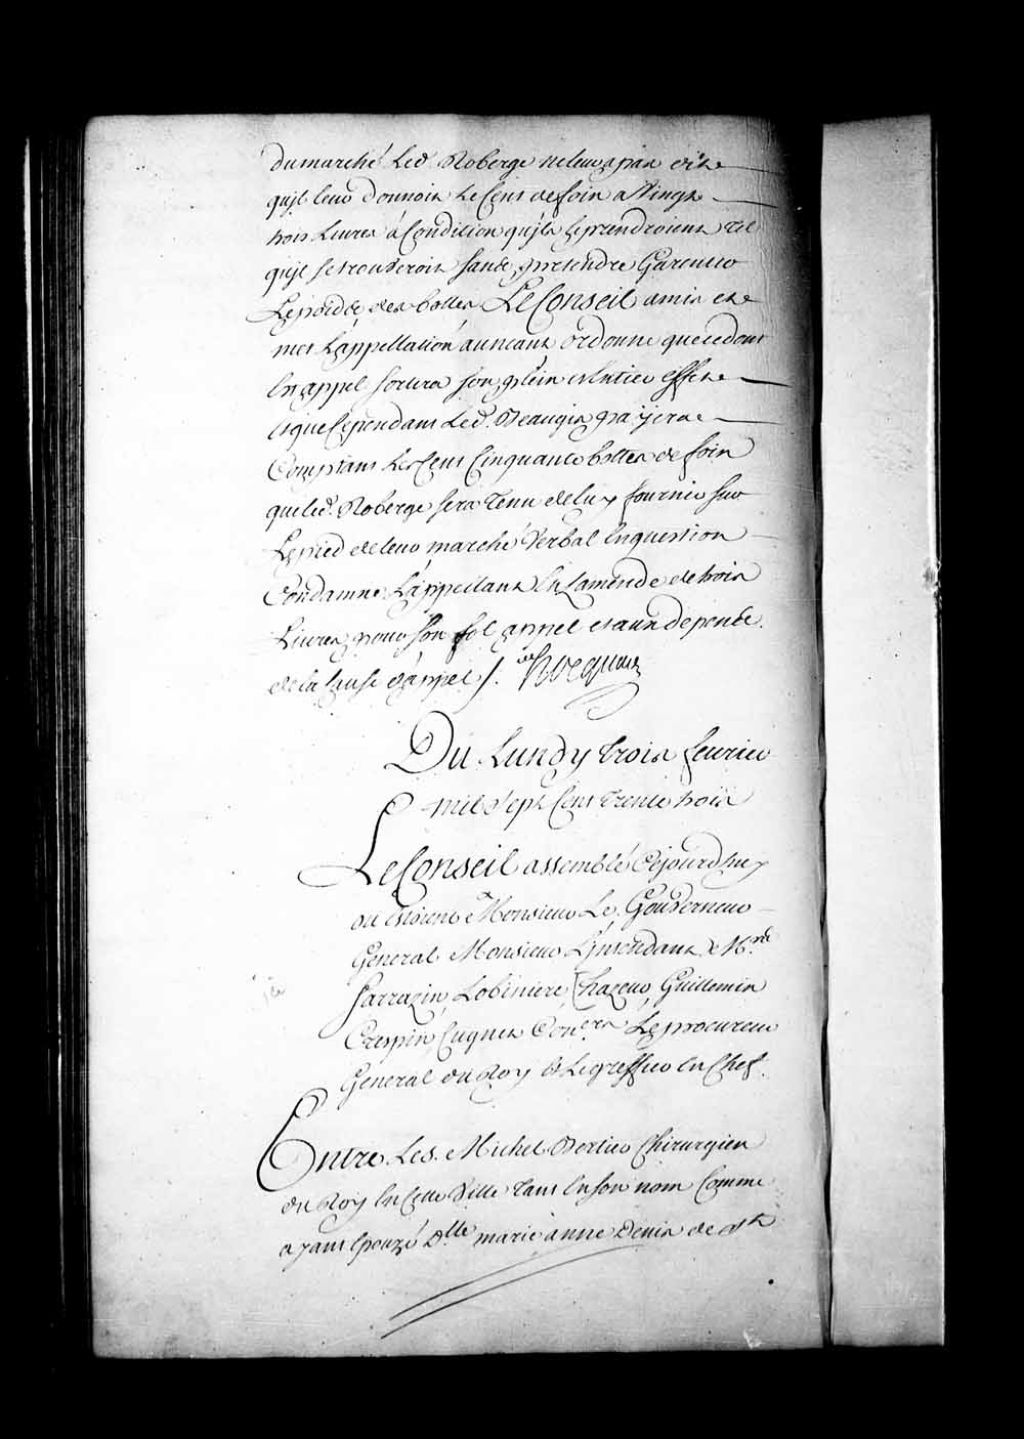 du marché led. Roberge ne leur a pas dit
qu'jl leur donnoit le Cent de foin a Vingt
trois Livres à Condition qu'jls le prendroient tel
qu'jl se trouveroit sans pretendre Garentir
Le poid des bottes Le Conseil a mis et
met L'appellation au neant ordonne que ce dont
En appel sortira son plein et Entier effet
et que Cependant led. payera
Comptant les Cent Cinquante bottes de foin
que led. Roberge sera tenu de luy fournir sur
Le pied de leur marché Verbal En question
Condamne L'appellant En L'amende de trois
Livres pour son fol appel et aux depens
de la Cause d'appel /. hocquart
Du Lundy trois feurier
mil sept Cent trente trois
Le Conseil assemblé Cejourd'huy
ou etoient Monsieur Le Gouverneur
General Monsieur L'jntendant & Mrs
Sarrazin, Lobiniere, Chazeur, Guillemin
Crespin, Cugnet Coners. Le procureur
General du Roy & Le greffier En Chef.
Entre Le s. Michel Bertier Chirurgien
du Roy En Cette Ville tant En son nom Comme
ayant Epouzé Dlle marie anne Denis de St